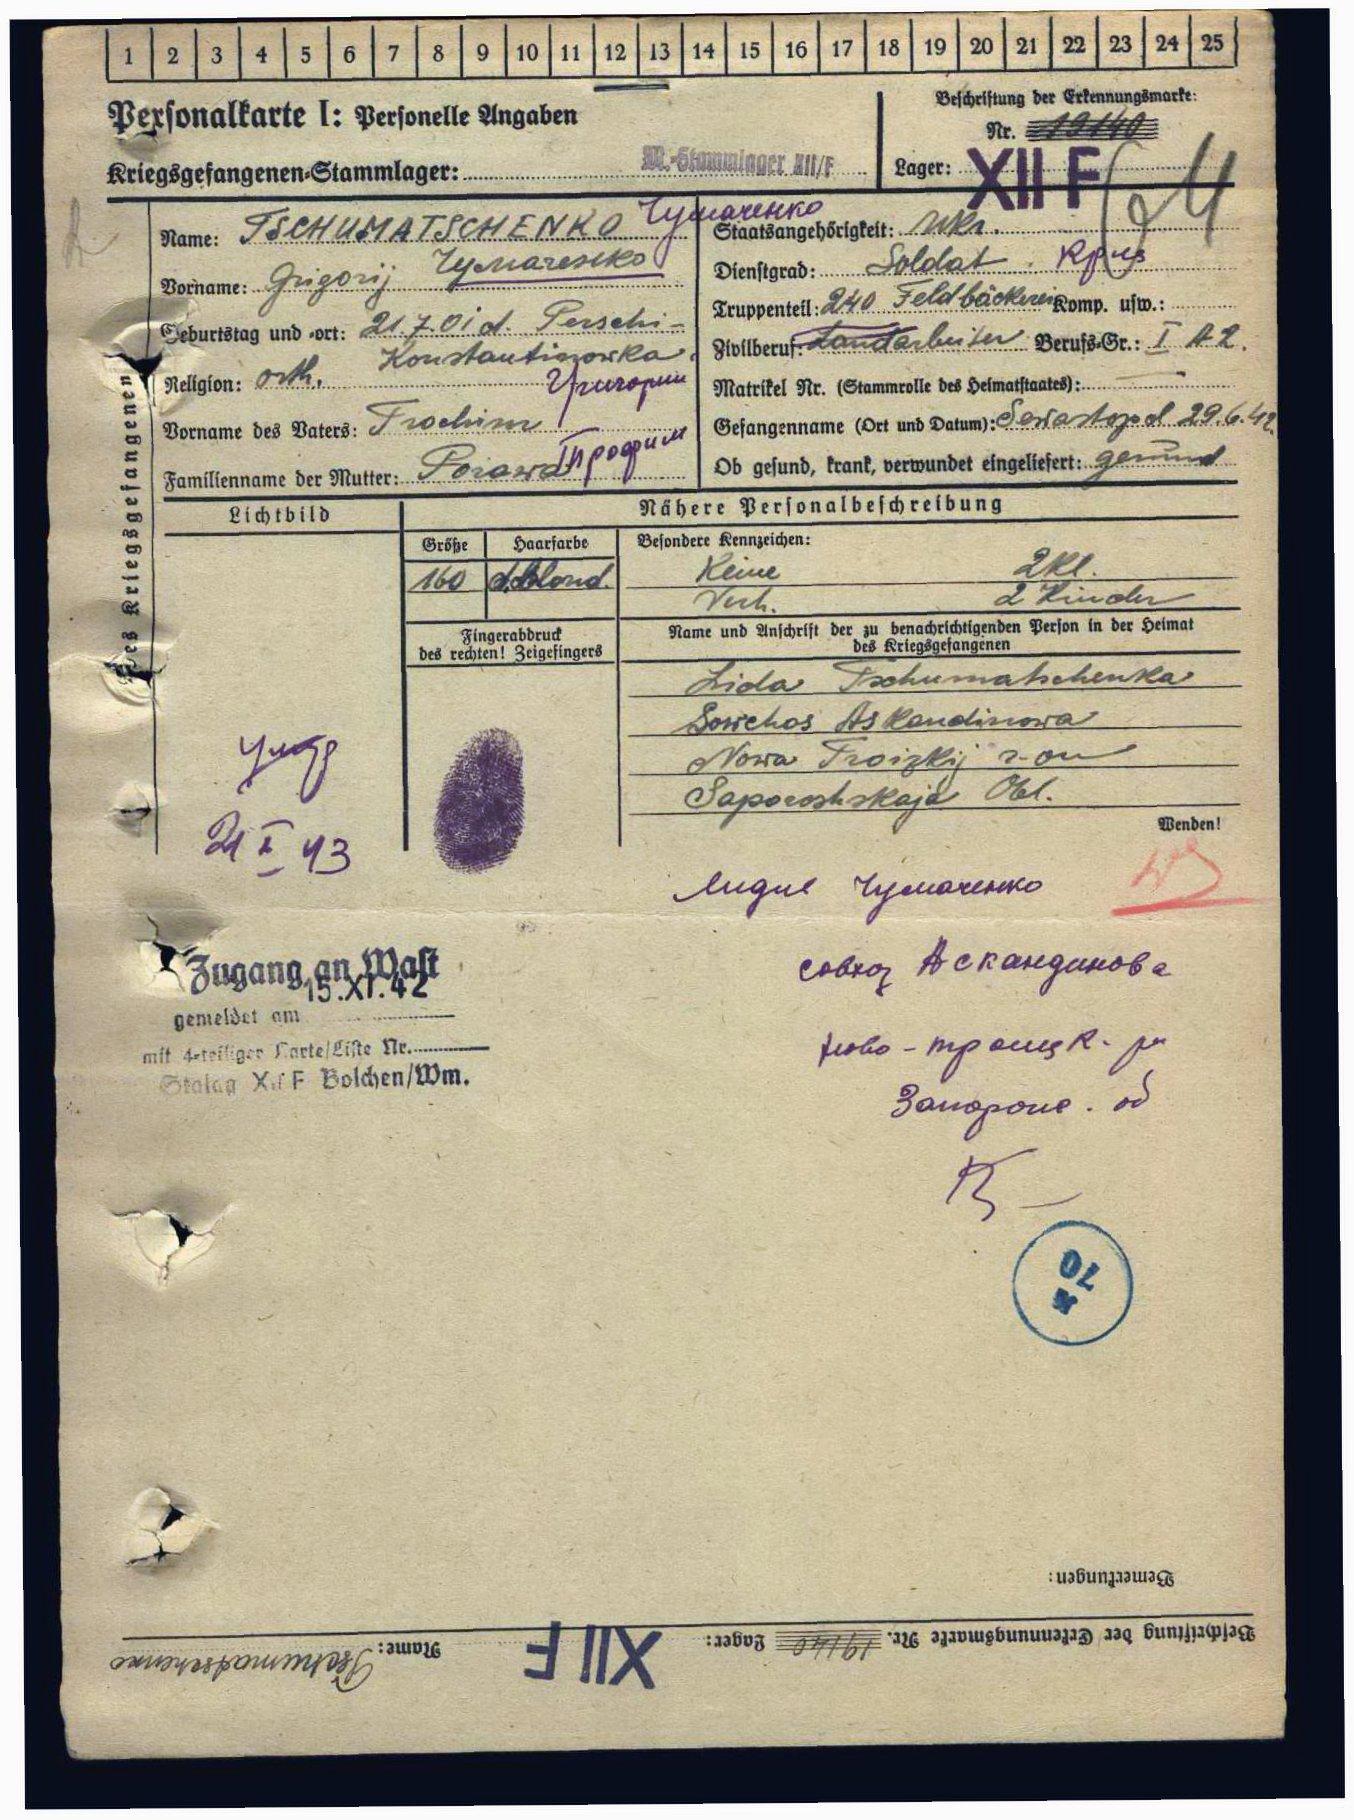 1 2 3 4 5 6 7 8 9 10 11 12 13 14 15 16 17 18 19 20 21 22 23 24 25
Personalkarte I: Personelle Angaben
Kriegsgefangenen-Stammlager: M.-Stammlager XII/F
Beschriftung der Erkennungsmarke:
Nr. 19140
Lager: XII F
Name: TSCHUMATSCHENKO Чумаченко
Чумаченко
Vorname: Grigorij
Geburtstag und -ort: 21.7.01 i.d. Perschi-
Konstantinowka
Religion: orth. Григории
Vorname des Vaters: Trochim
Трофим
Familienname der Mutter: Porawa
Staatsangehörigkeit: Ukr.
Dienstgrad: Soldat
Truppenteil: 240 Feldbäckerei Komp. usw.:
Zivilberuf: Landarbeiter Berufs-Gr.: I A 2.
Matrikel Nr. (Stammrolle des Heimatstaates): —
Gefangenname (Ort und Datum): Sewastopol 29.6.42.
Ob gesund, krank, verwundet eingeliefert: gesund
des Kriegsgefangenen
Lichtbild
Nähere Personalbeschreibung
Größe Haarfarbe Besondere Kennzeichen:
160 d.blond. Keine 2 Kl.
Verh. 2 Kinder
Fingerabdruck
des rechten! Zeigefingers
Name und Anschrift der zu benachrichtigenden Person in der Heimat
des Kriegsgefangenen
Lida Tschumatschenka
Sowchos Askandinowa
Nowa Troizkij r-on
Saporoshskaja Obl.
Wenden!
умер
21 I 43
Лидие Чумаченко
совхоз Аскандинова
ново-троицк. рн
Запорож. об
Zugang an Wast
15.XI.42
gemeldet am
mit 4-teiliger Karte/Liste Nr.
Stalag XII F Bolchen/Wm.
70
Bemerkungen:
Beschriftung der Erkennungsmarke Nr. 19140 Lager: XII F Name: Tschumatschenko